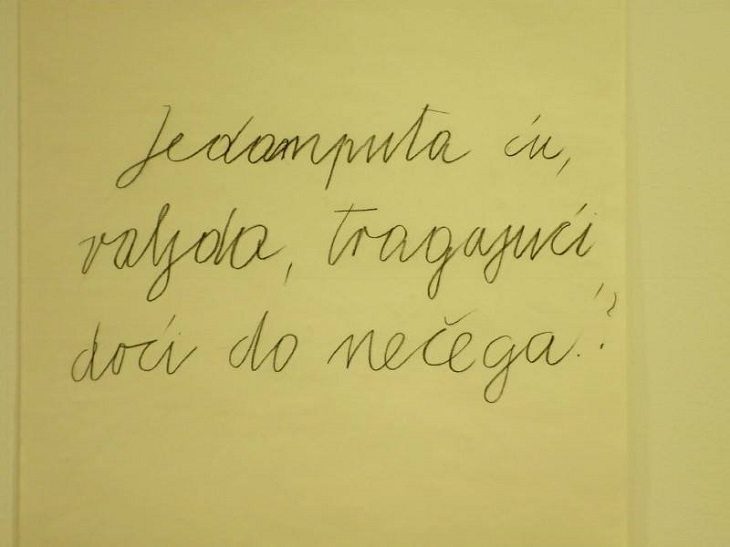 Jedamputa ću,
valjda, tragajući
doći do nečega!?